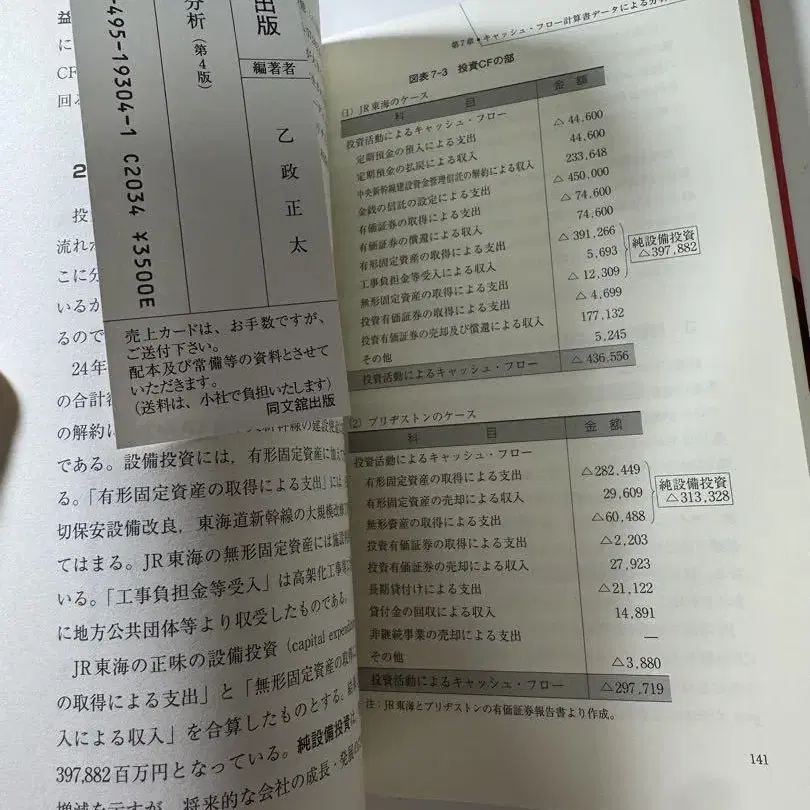 益
に
CF
回
2
投
流れ
こに分
いるか
るので
24年
の合計
の解約に
である。設備投資には，有形固定資産に加えて
る。「有形固定資産の取得による支出」には
切保安設備改良，東海道新幹線の大規模改修
てはまる。JR東海の無形固定資産には施設
いる。「工事負担金等受入」は高架化工事等
に地方公共団体等より収受したものである。
JR東海の正味の設備投資（capital expend
の取得による支出」と「無形固定資産の取得
入による収入」を合算したものとする。
397,882百万円となっている。純設備投資は，
増減を示すが，将来的な会社の成長・発展の
出版
分析（第4版）
編著者
乙政正太
-495-19304-1 C2034 ¥3500E
売上カードは、お手数ですが、
ご送付下さい。
配本及び常備等の資料とさせて
いただきます。
（送料は、小社で負担いたします）
同文舘出版
第7章●キャッシュ・フロー計算書データによる分析
図表7-3 投資CFの部
(1) JR東海のケース
科 目 金 額
投資活動によるキャッシュ・フロー
定期預金の預入による支出 △ 44,600
定期預金の払戻による収入 44,600
中央新幹線建設資金管理信託の解約による収入 233,648
金銭の信託の設定による支出 △ 450,000
有価証券の取得による支出 △ 74,600
有価証券の償還による収入 74,600
有形固定資産の取得による支出 △ 391,266
工事負担金等受入による収入 5,693
無形固定資産の取得による支出 △ 12,309
純設備投資
△397,882
投資有価証券の取得による支出 △ 4,699
投資有価証券の売却及び償還による収入 177,132
その他 5,245
投資活動によるキャッシュ・フロー △ 436,556
(2) ブリヂストンのケース
科 目 金 額
投資活動によるキャッシュ・フロー
有形固定資産の取得による支出 △282,449
有形固定資産の売却による収入 29,609
無形資産の取得による支出 △60,488
純設備投資
△313,328
投資有価証券の取得による支出 △2,203
投資有価証券の売却による収入 27,923
長期貸付けによる支出 △21,122
貸付金の回収による収入 14,891
非継続事業の売却による支出 —
その他 △3,880
投資活動によるキャッシュ・フロー △297,719
注：JR東海とブリヂストンの有価証券報告書より作成。
141